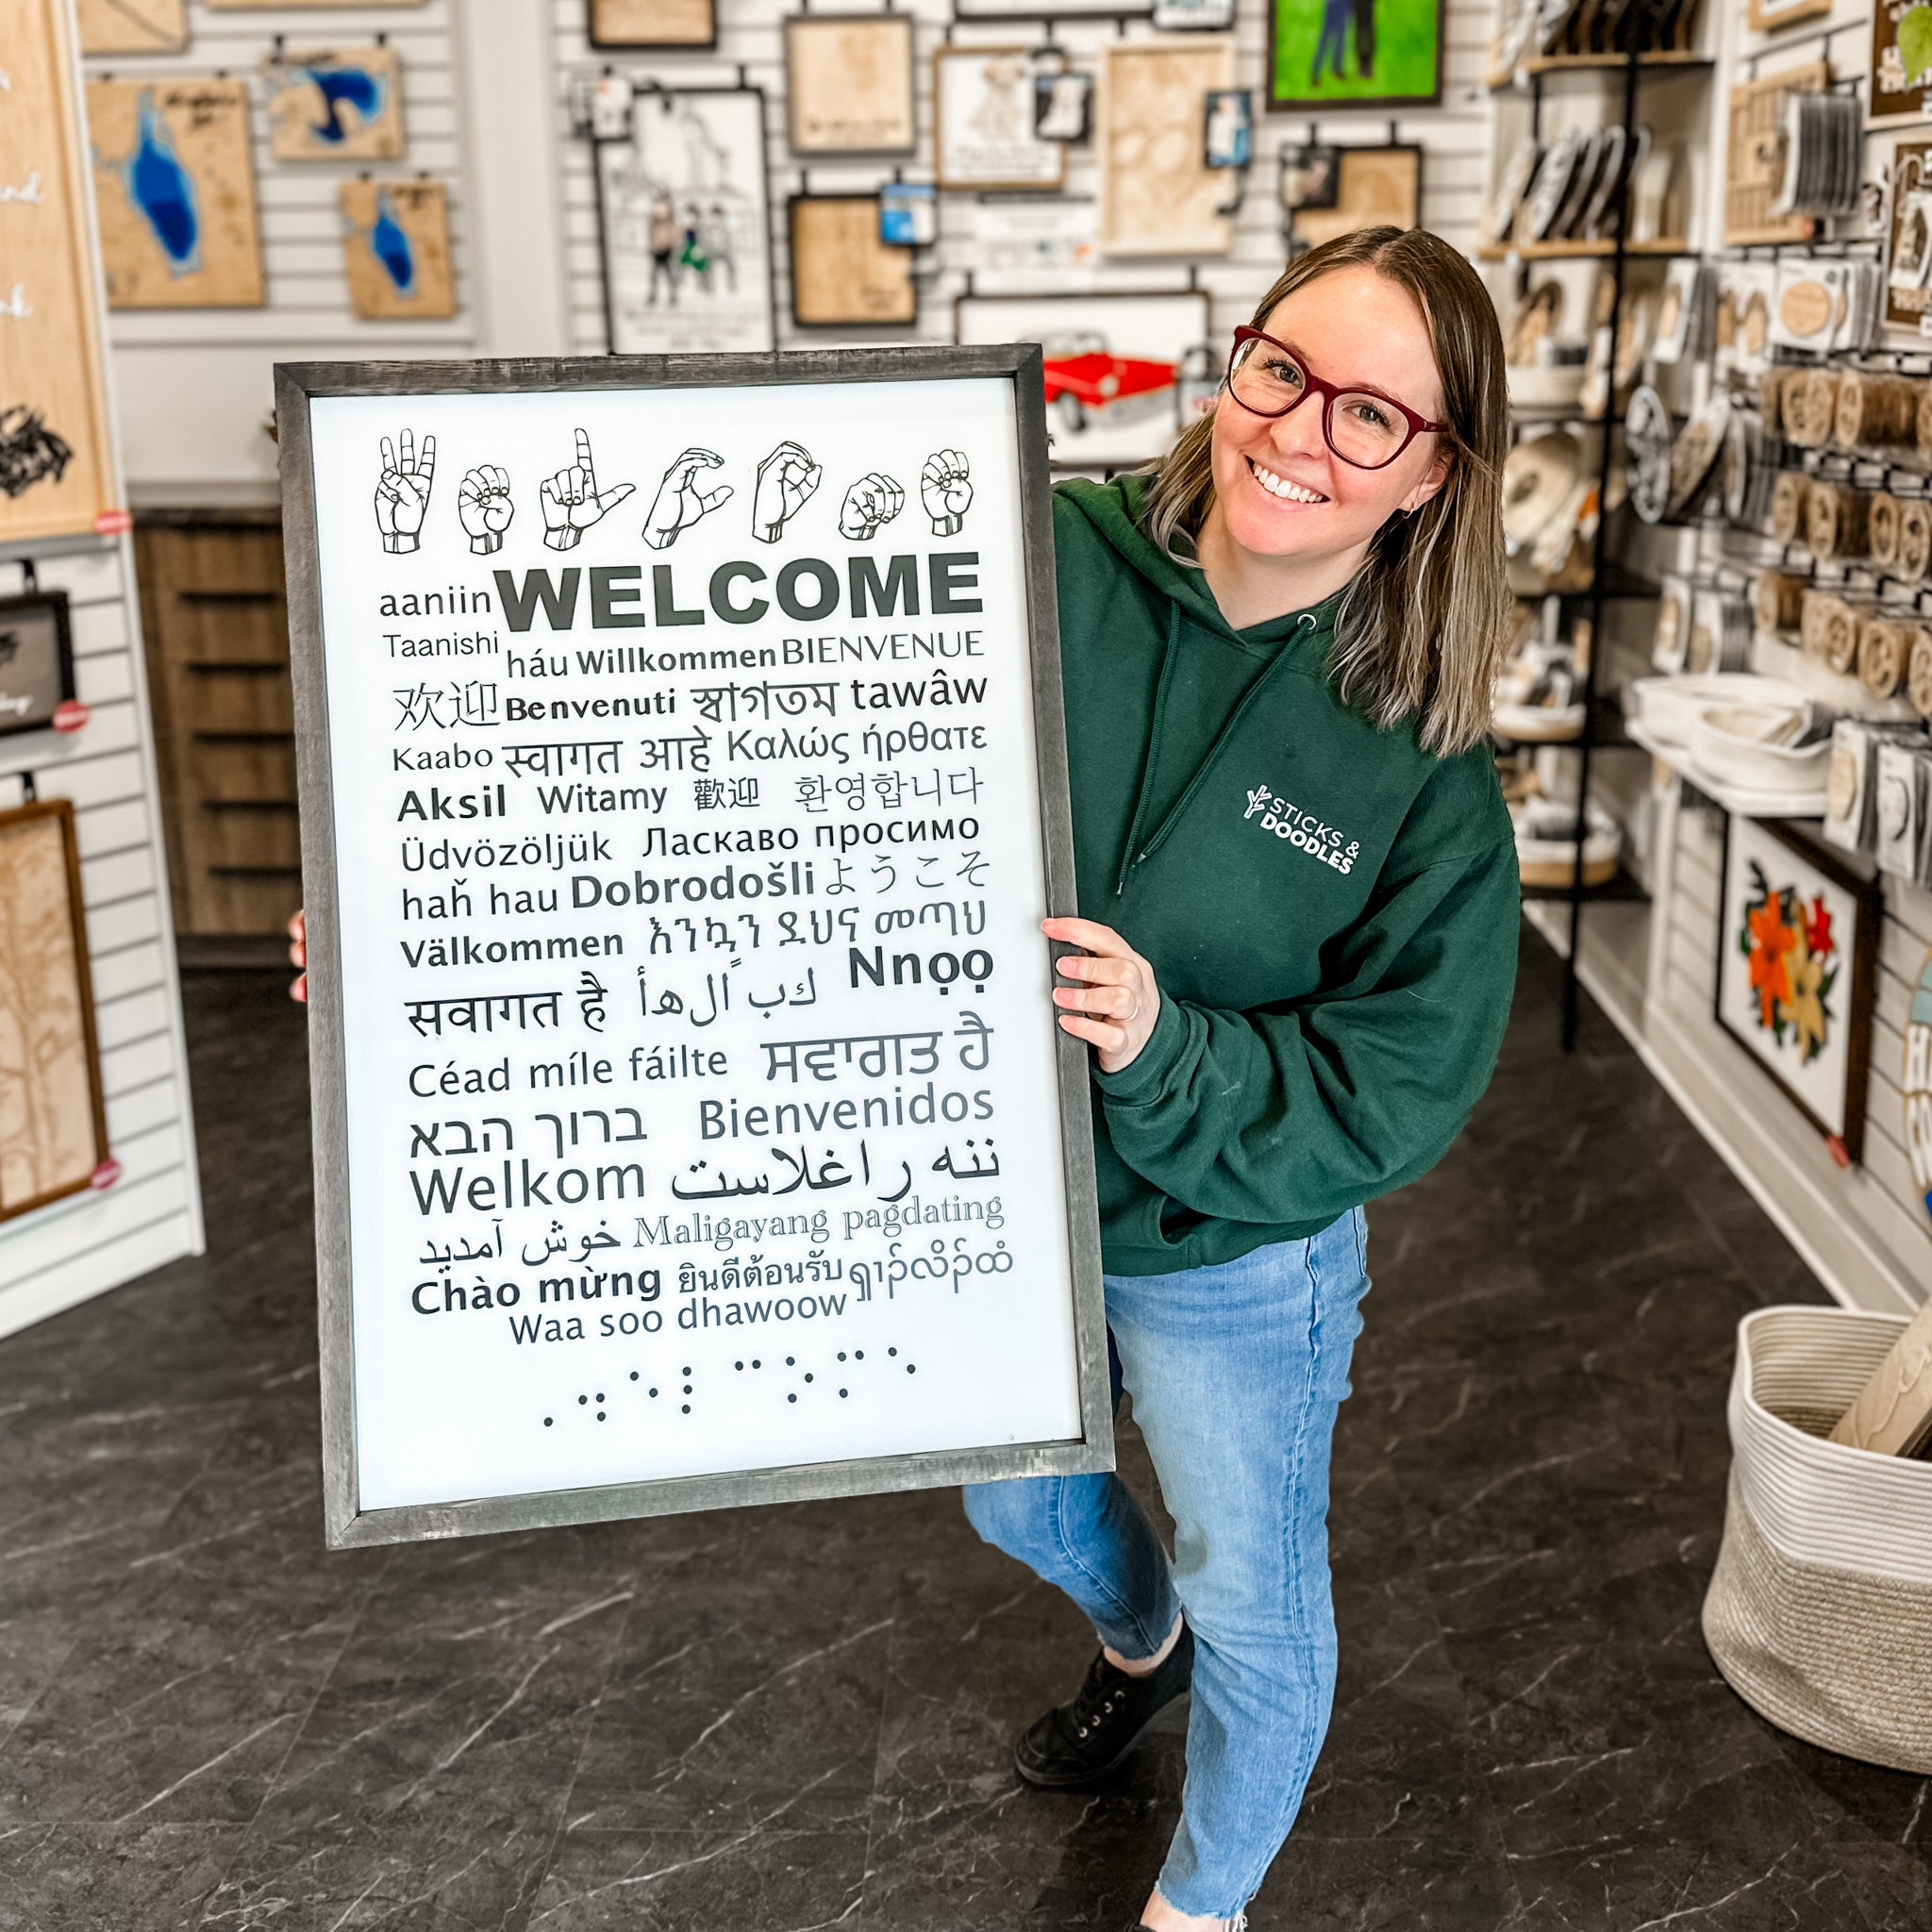 aaniin WELCOME
Taanishi háu Willkommen BIENVENUE
欢迎 Benvenuti স্বাগতম tawâw
Kaabo स्वागत आहे Καλώς ήρθατε
Aksil Witamy 歡迎 환영합니다
Üdvözöljük Ласкаво просимо
haȟ hau Dobrodošli ようこそ
Välkommen እንኳን ደህና መጣህ
सवागत है أهال ًك ب Nnọọ
Céad míle fáilte ਸਵਾਗਤ ਹੈ
ברוך הבא Bienvenidos
Welkom ننه راغلاست
خوش آمدید Maligayang pagdating
Chào mừng ยินดีต้อนรับ
Waa soo dhawoow
⠠⠺⠑⠇⠉⠕⠍⠑
STICKS &
DOODLES